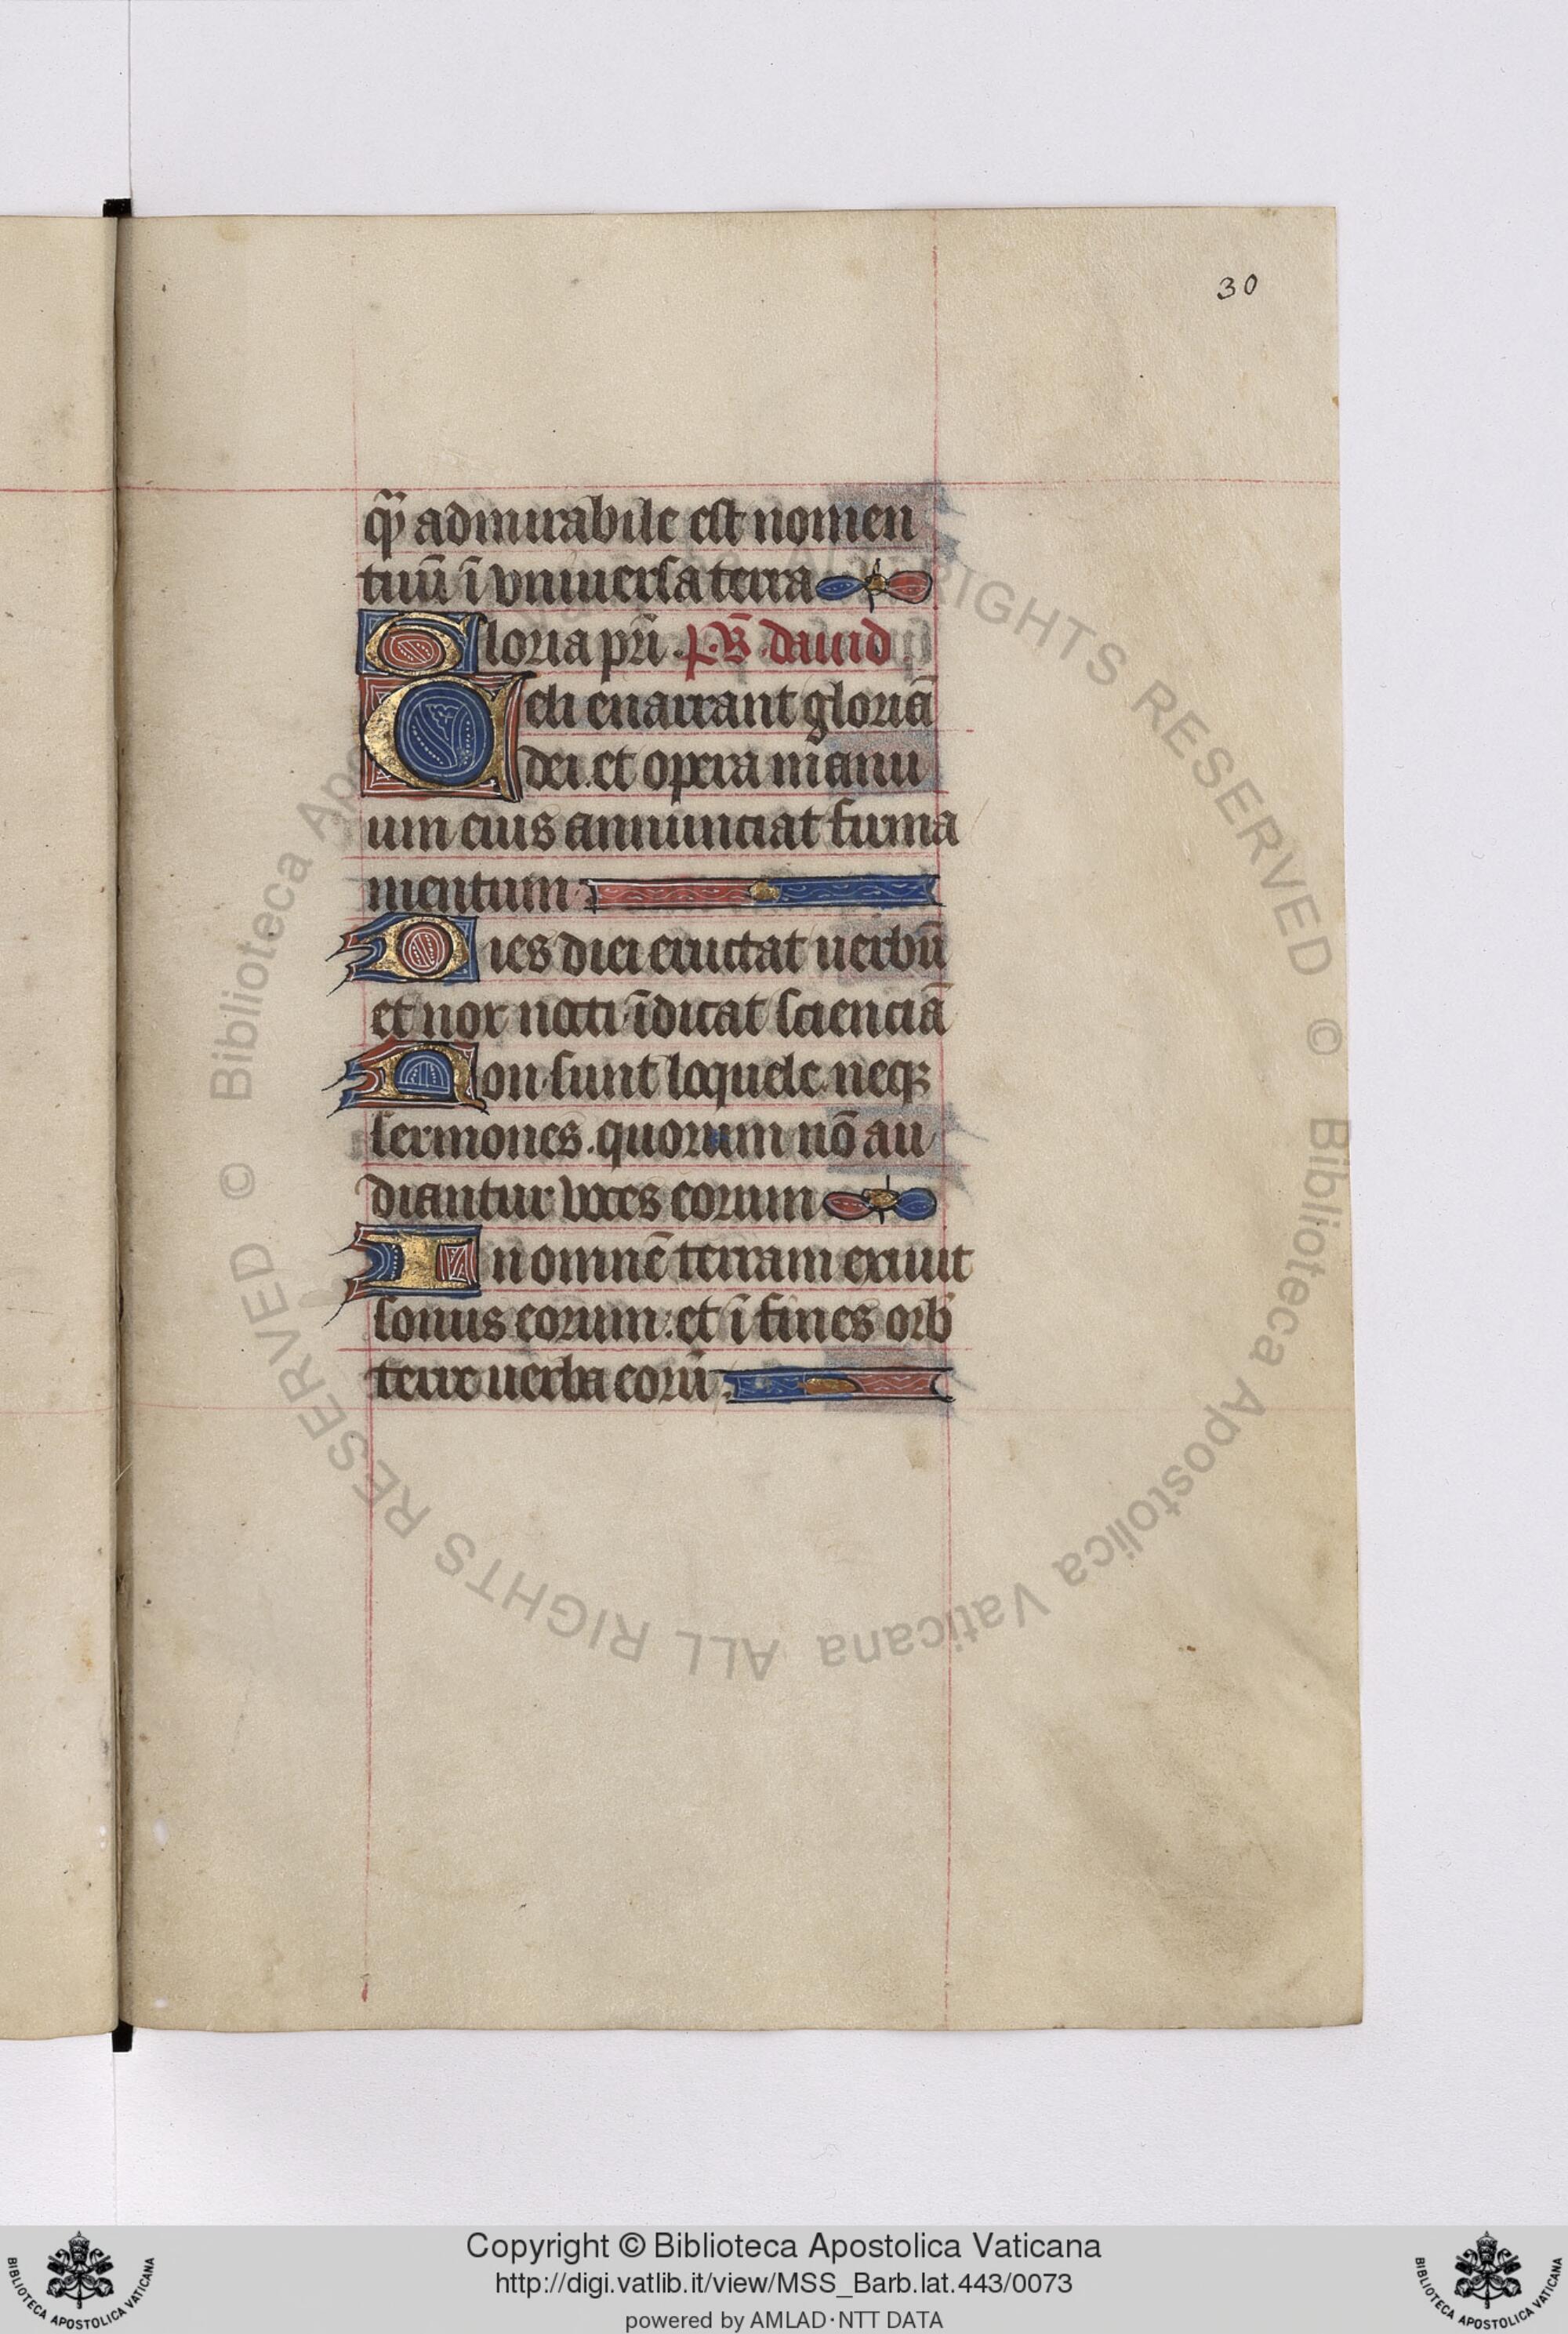 30
qͫ admirabile est nomen
tuū ī vniuersa terra
Gloria pr̄i . p̄. B̄. dauid
Celi enarrant gloriā
dei . et opera manu
um eius annunciat firma
mentum .
Dies diei eructat uerbū
et nox nocti īdicat scienciā
Non sunt loquele neqꝫ
sermones . quorum nō au
diantur voces eorum
In omnē terram exiuit
sonus eorum : et ī fines orb̾
terre uerba eorū .
© Biblioteca Apostolica Vaticana ALL RIGHTS RESERVED
Copyright © Biblioteca Apostolica Vaticana
http://digi.vatlib.it/view/MSS_Barb.lat.443/0073
powered by AMLAD·NTT DATA
BIBLIOTECA APOSTOLICA VATICANA
BIBLIOTECA APOSTOLICA VATICANA